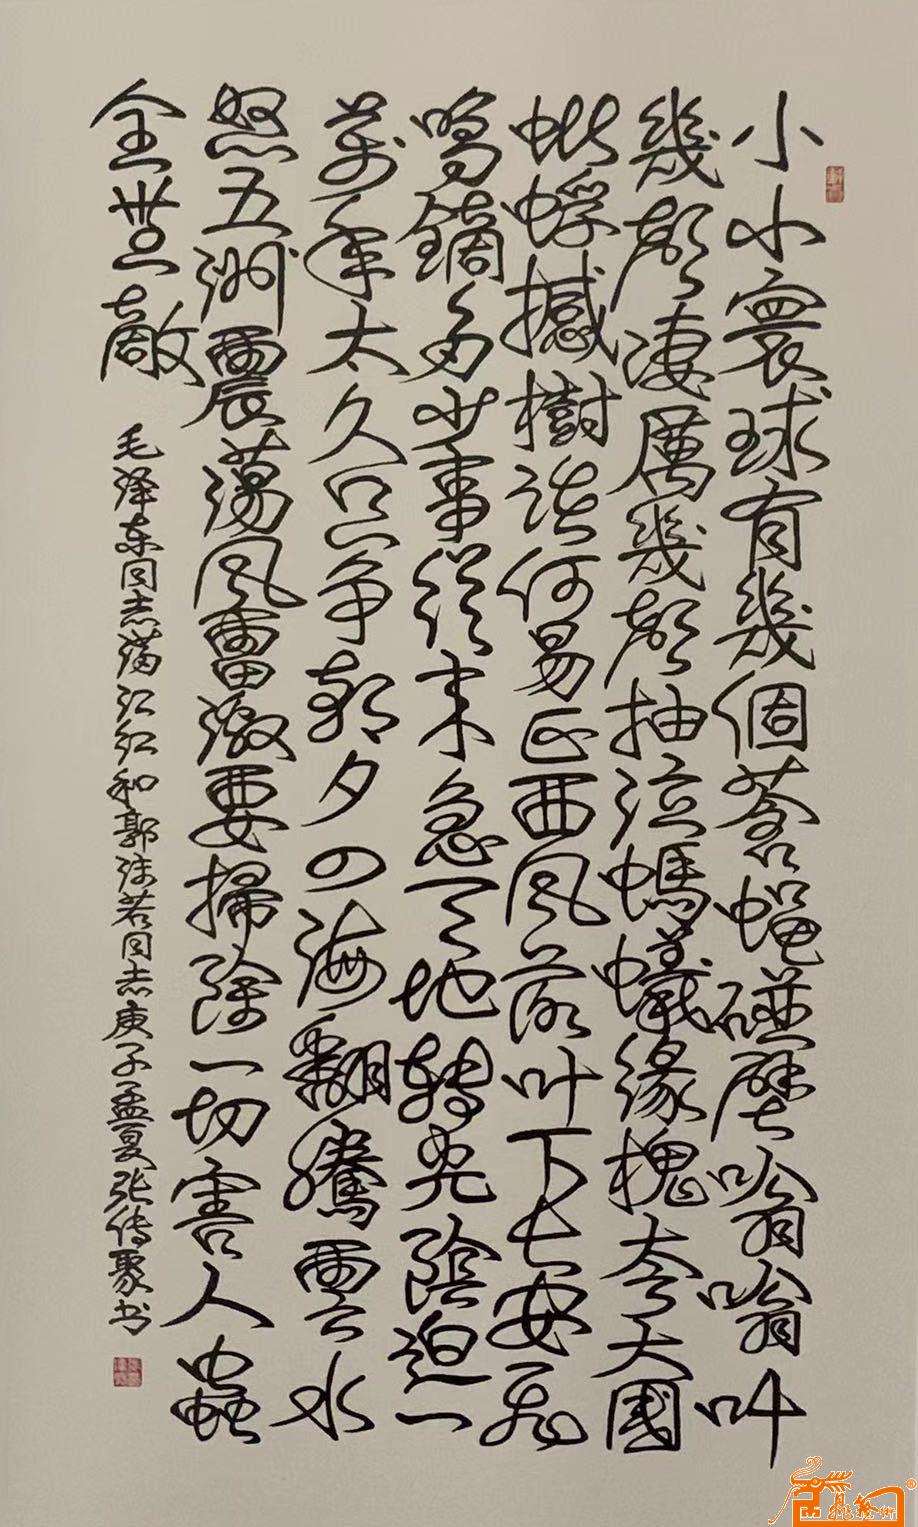 小小寰球有幾個蒼蝇碰壁嗡嗡叫
幾聲凄厲幾聲抽泣螞蟻緣槐夸大國
蚍蜉撼樹談何易正西風落叶下長安飛
鳴鏑多少事從來急天地轉光陰迫一
萬年太久只爭朝夕四海翻騰雲水
怒五洲震蕩風雷激要掃除一切害人蟲
全無敵
毛泽东同志满江红和郭沫若同志庚子孟夏张传聚书